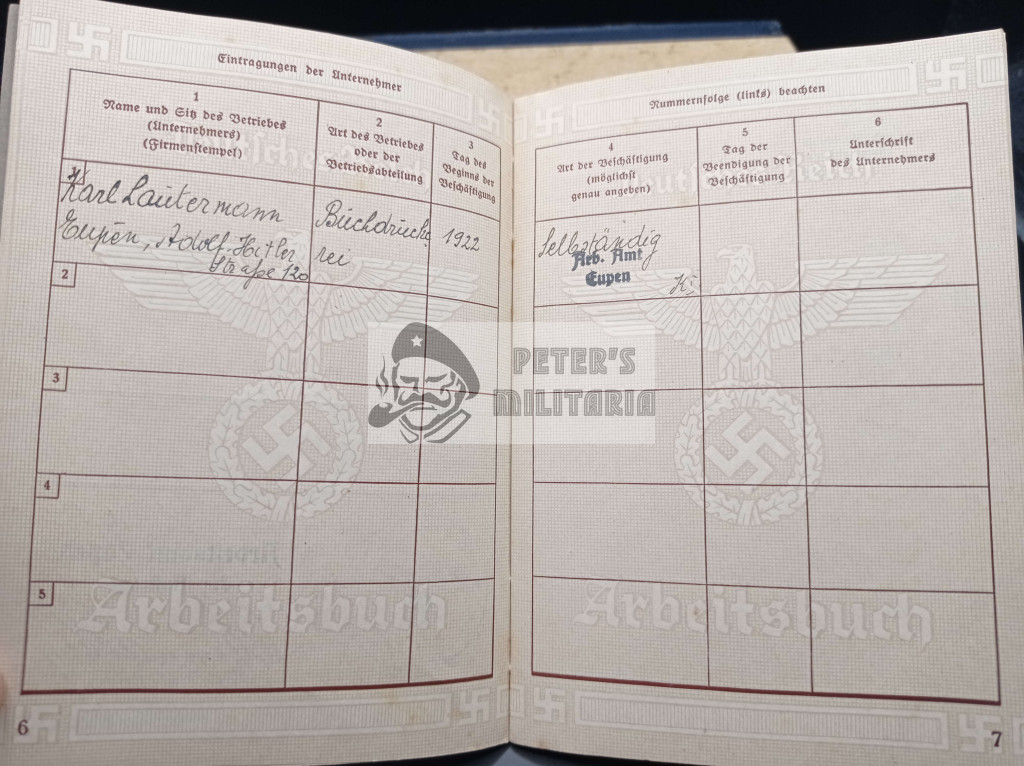 Eintragungen der Unternehmer
1
Name und Sitz des Betriebes
(Unternehmers)
(Firmenstempel)
2
Art des Betriebes
oder der
Betriebsabteilung
3
Tag des
Beginns der
Beschäftigung
Karl Lautermann
Eupen, Adolf-Hitler
Straße 120
Buchdrucke
rei
1922
2
3
4
5
Arbeitsbuch
6
Nummernfolge (links) beachten
4
Art der Beschäftigung
(möglichst
genau angeben)
5
Tag der
Beendigung der
Beschäftigung
6
Unterschrift
des Unternehmers
Selbständig
Arb. Amt
Eupen
Arbeitsbuch
7
PETER'S
MILITARIA